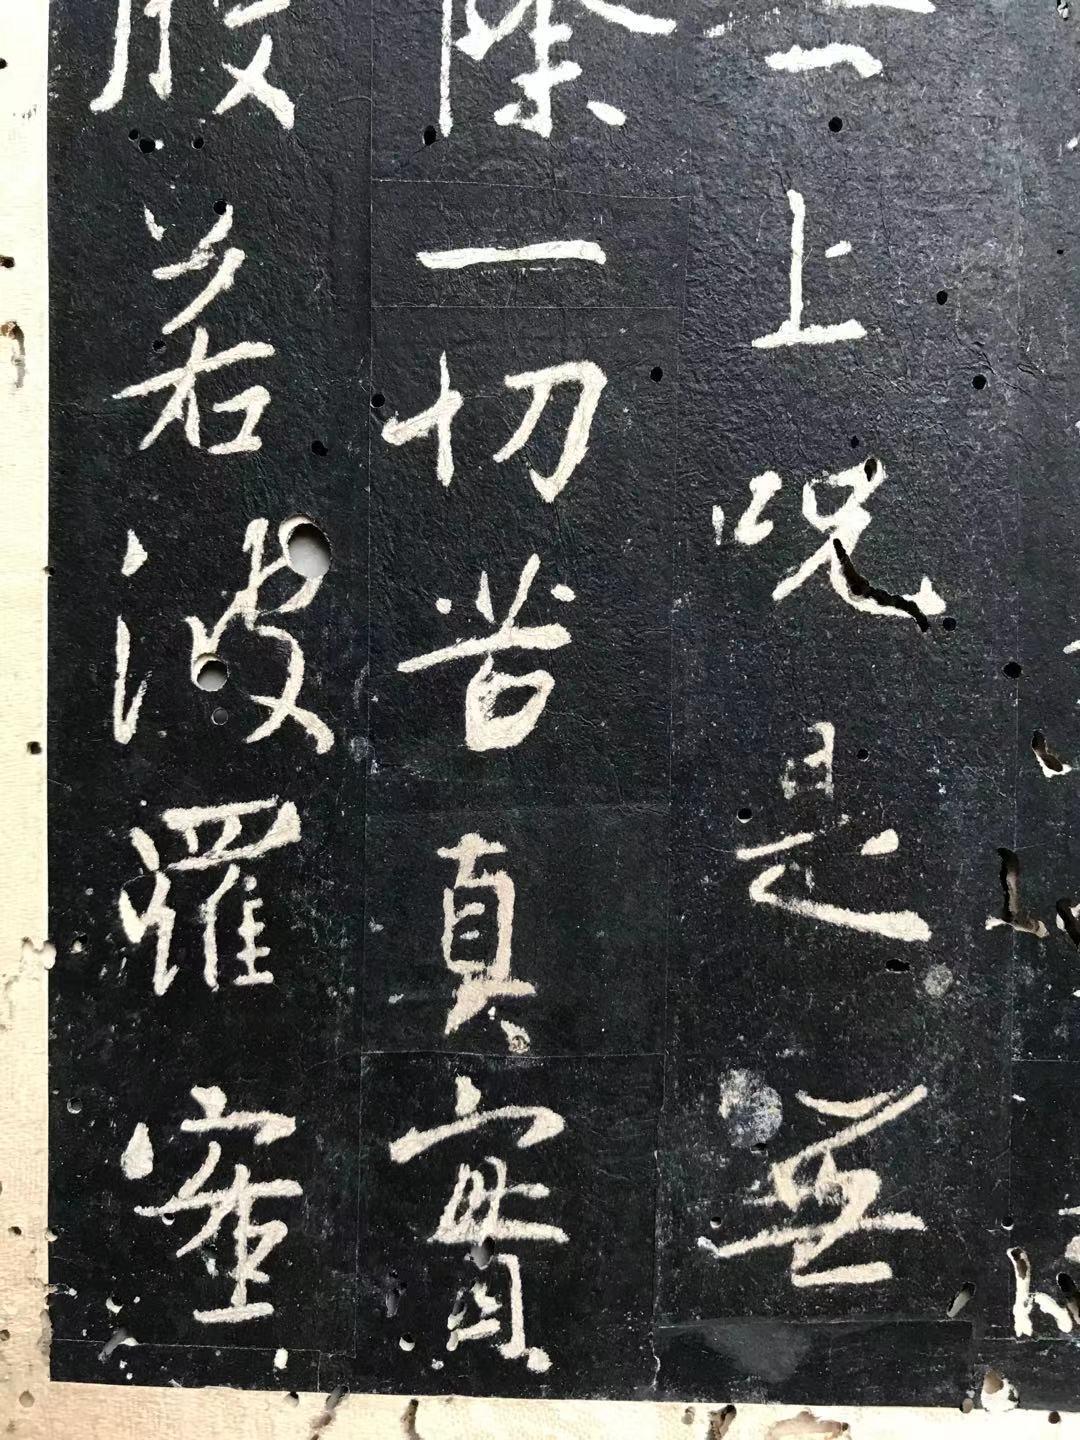 無上呪是無
除一切苦真實
般若波羅蜜